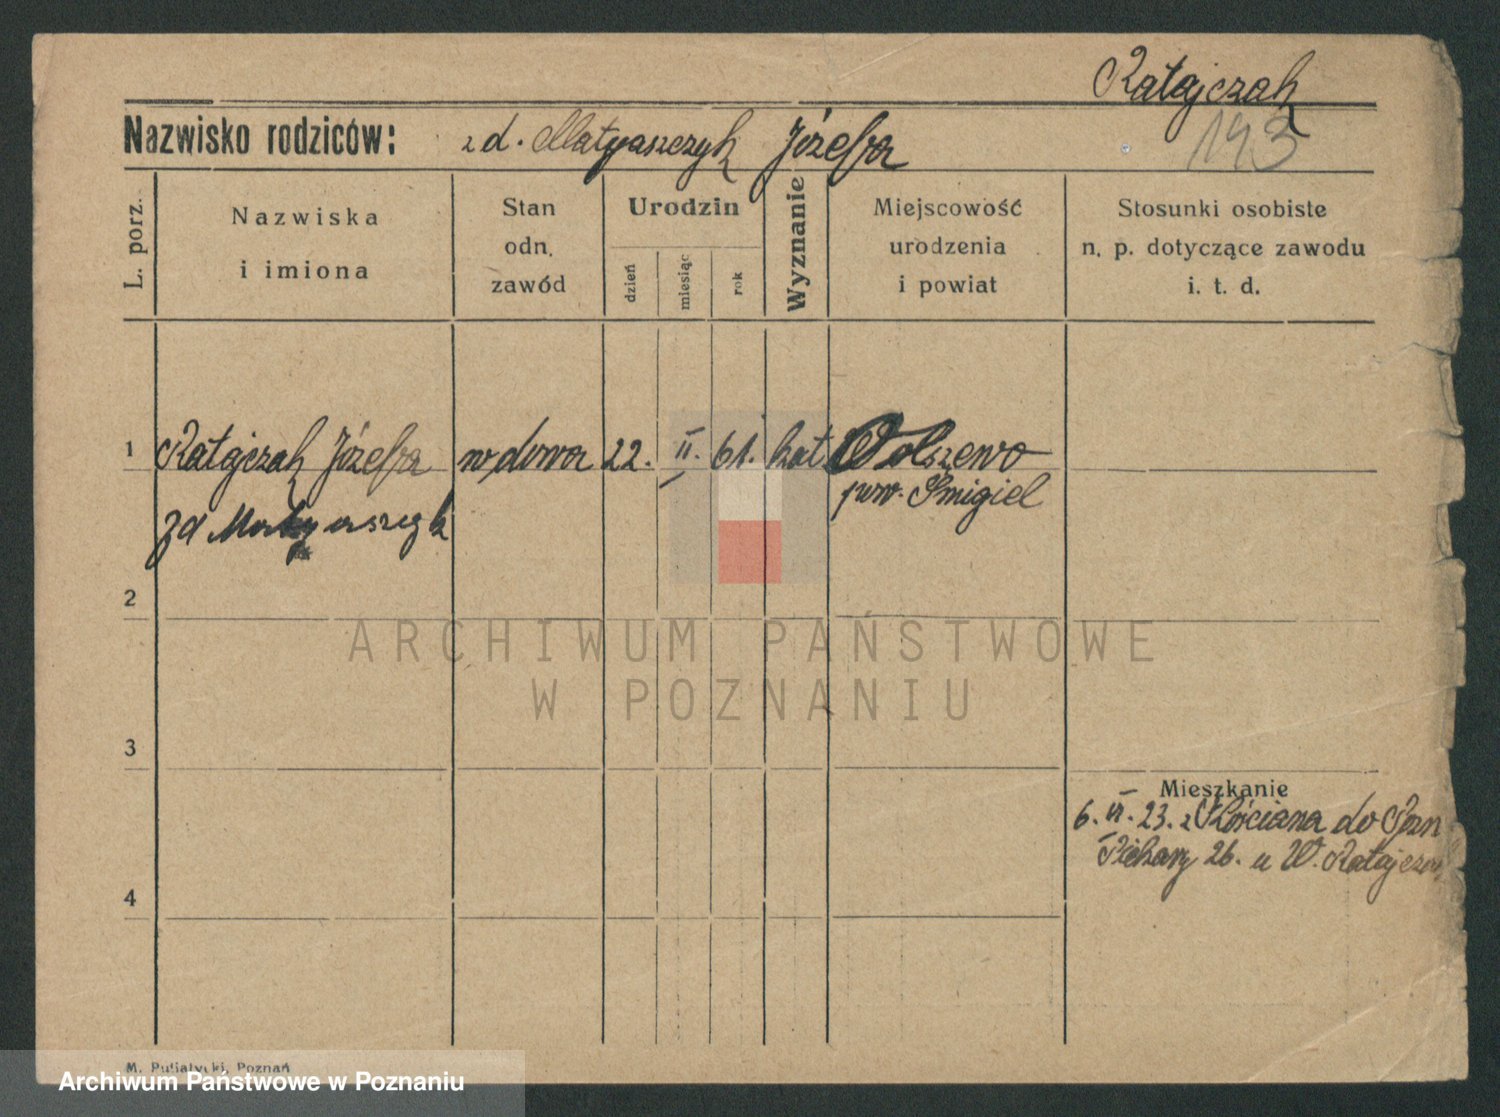 Ratajczak
143
Nazwisko rodziców: zd. Matyaszczyk Józefa
L. porz.
Nazwiska
i imiona
Stan
odn.
zawód
Urodzin
dzień
miesiąc
rok
Wyznanie
Miejscowość
urodzenia
i powiat
Stosunki osobiste
n. p. dotyczące zawodu
i. t. d.
1 Ratajczak Józefa wdowa 22. II. 61. kat
pow. Śmigiel
zd Matyaszczyk
2
ARCHIWUM PAŃSTWOWE
W POZNANIU
3
Mieszkanie
6. VI. 23. z Kościana do Pozn
Piekary 26. u W. Ratajczak
4
M. Putiatycki, Poznań
Archiwum Państwowe w Poznaniu